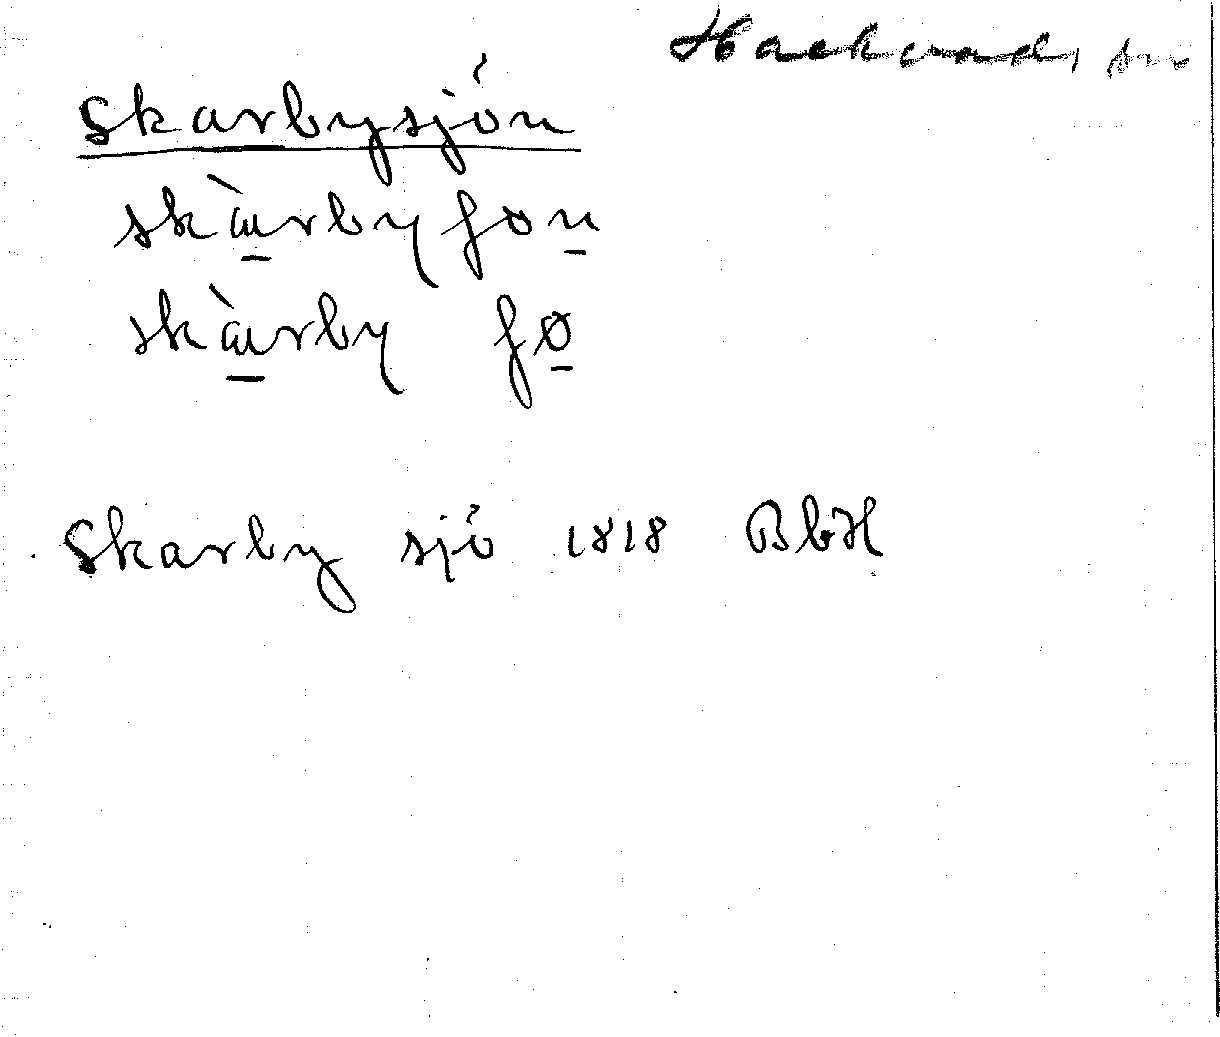 Hackvads sn
Skarbysjön
skàrbyʃon
skàrby ʃø
Skarby sjö 1818 BbH